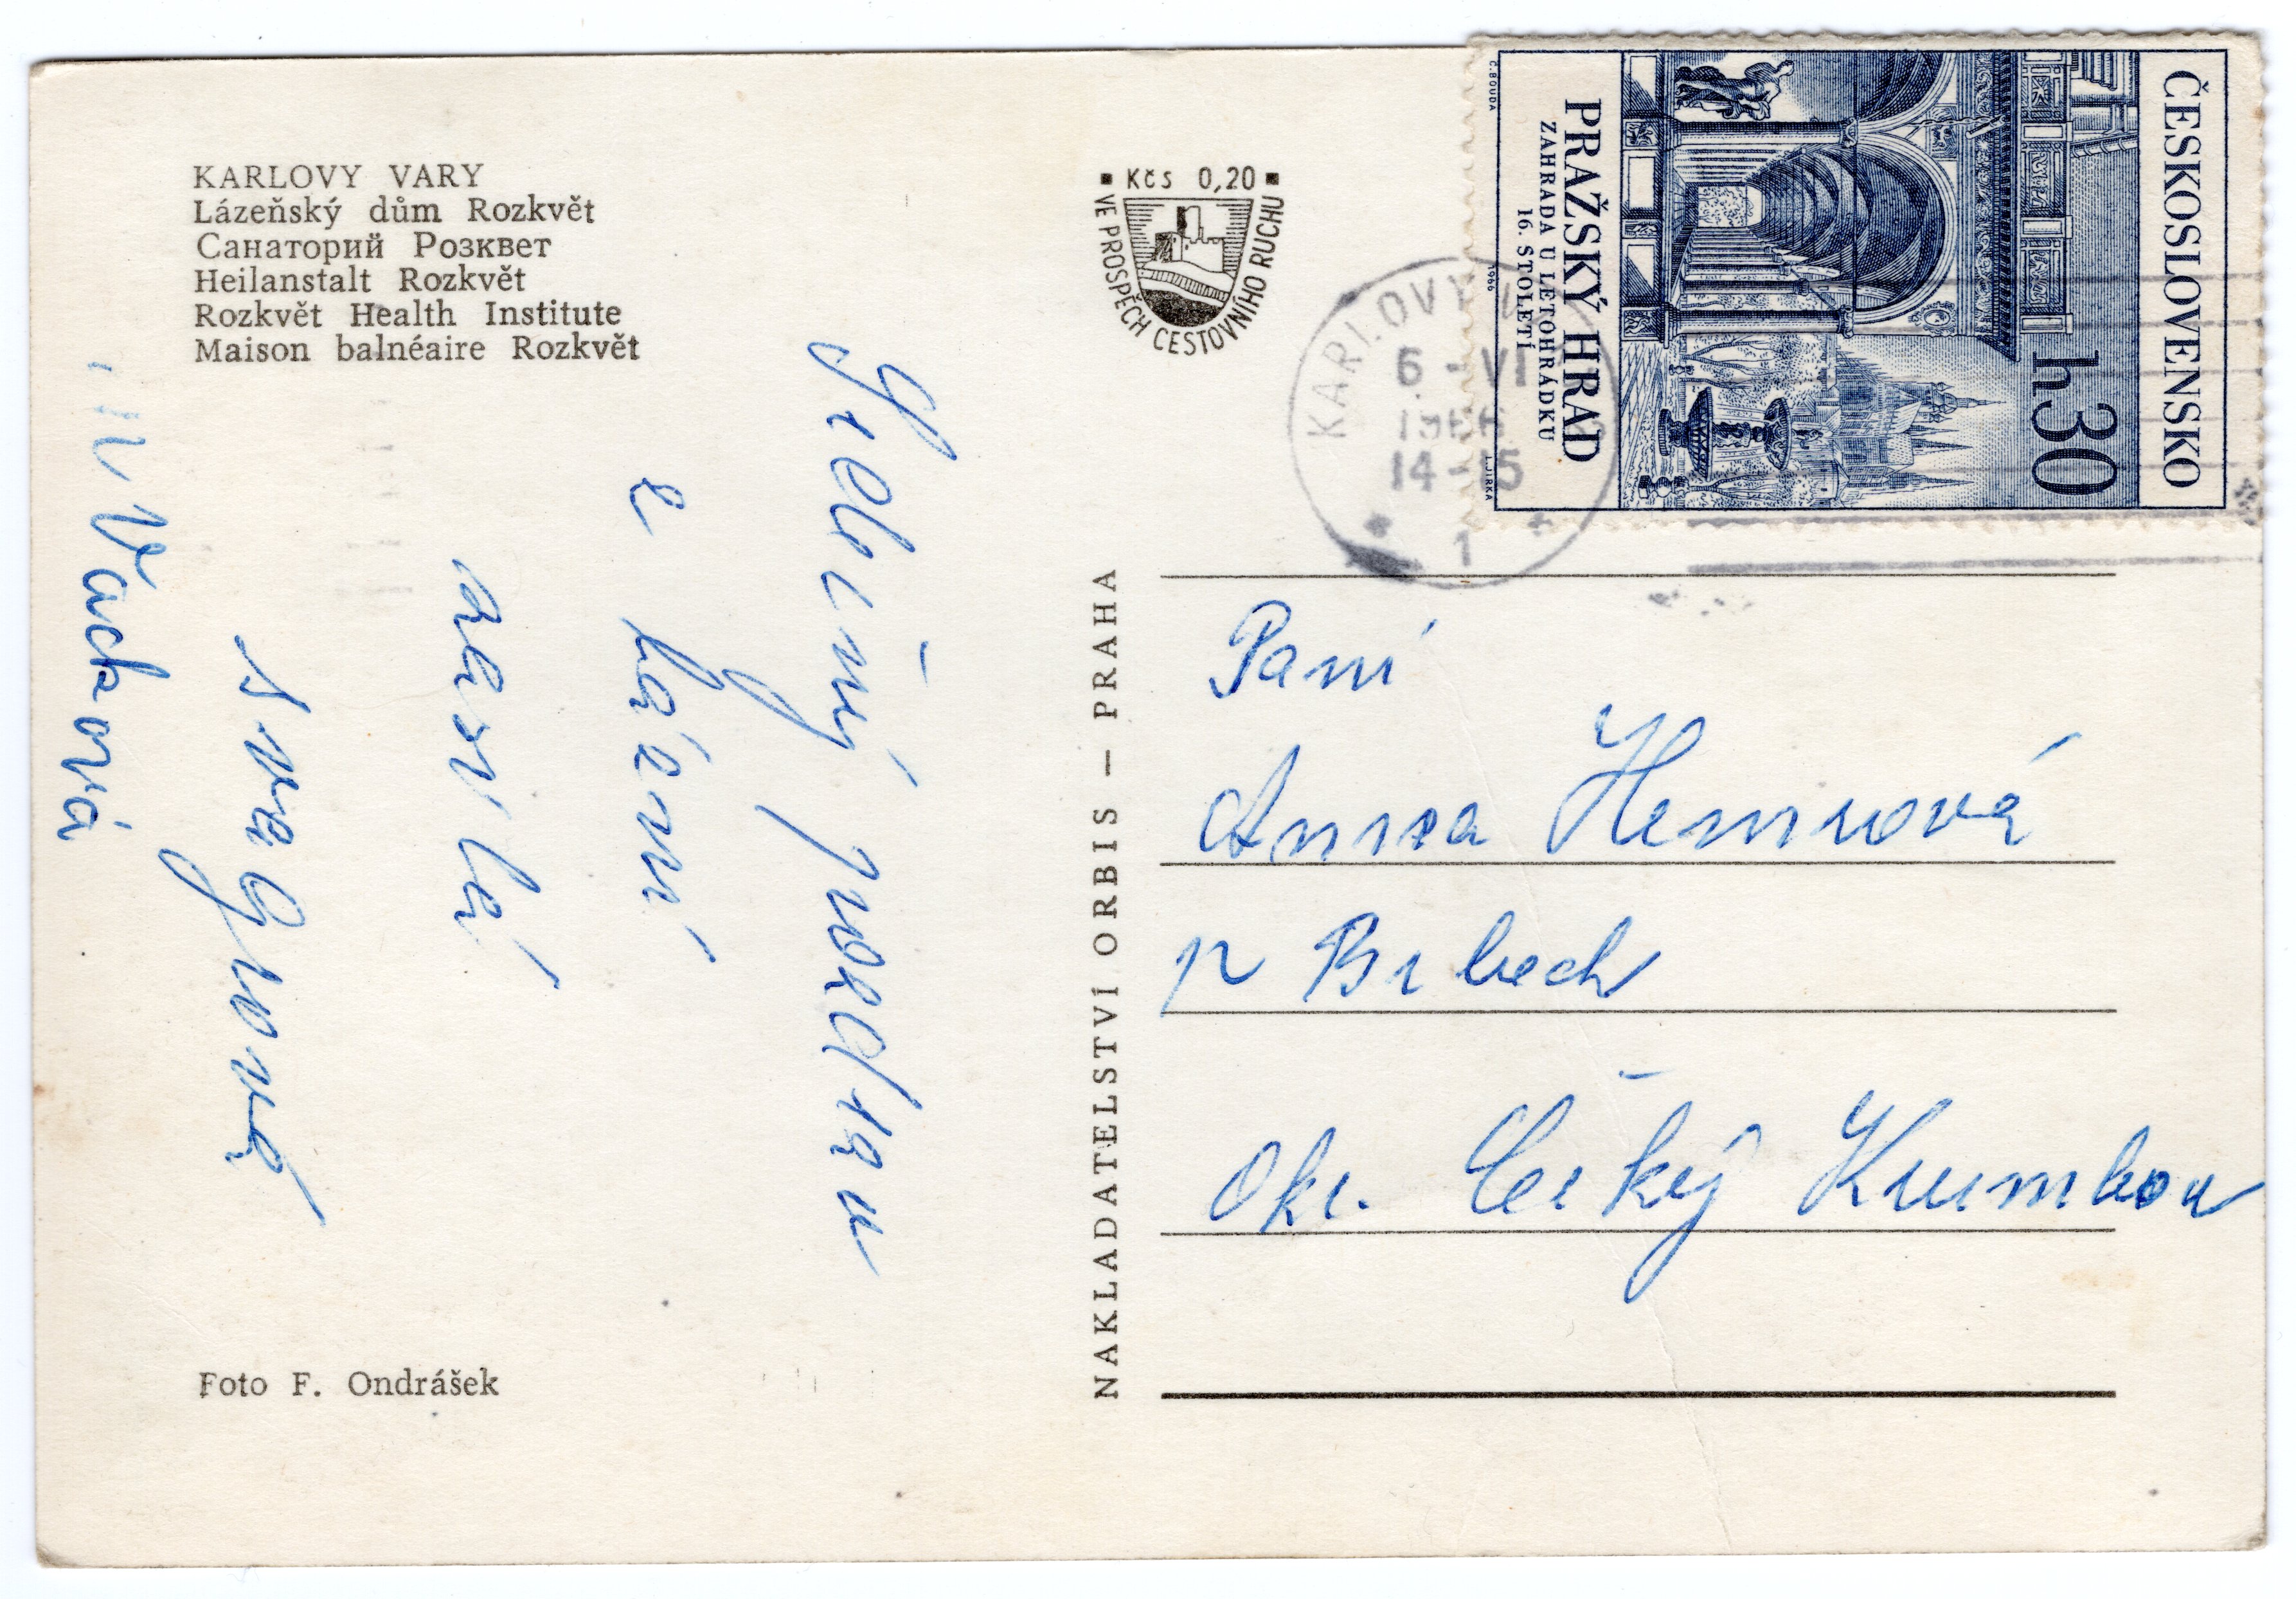 KARLOVY VARY
Lázeňský dům Rozkvět
Санаторий Розквет
Heilanstalt Rozkvět
Rozkvět Health Institute
Maison balnéaire Rozkvět
Srdečný pozdrav
z lázní
zasílá
švagrová
Vacková
Foto F. Ondrášek
NAKLADATELSTVÍ ORBIS — PRAHA
Kčs 0,20
VE PROSPĚCH CESTOVNÍHO RUCHU
KARLOVY
6 - VI
1966
14-15
1
ČESKOSLOVENSKO
h30
PRAŽSKÝ HRAD
ZAHRADA U LETOHRÁDKU
16. STOLETÍ
C. BOUDA
1966
J. JIRKA
Paní
Anna Hemrová
p Brloch
Okr. Český Krumlov